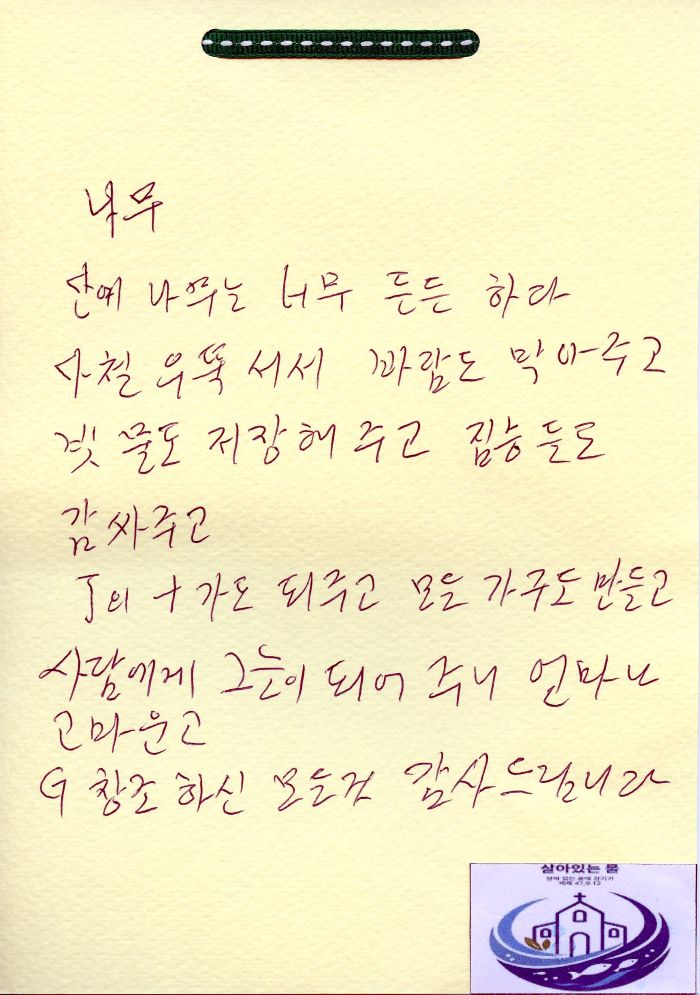 나무
산에 나무는 너무 든든 하다
사철 우뚝 서서 바람도 막아주고
빗물도 저장해 주고 짐승들도
감싸주고
J의 十가도 되주고 모든 가구도 만들고
사람에게 그늘이 되어 주니 얼마나
고마운고
G 창조 하신 모든것 감사드립니다
살아있는 물
에제 47,9.12